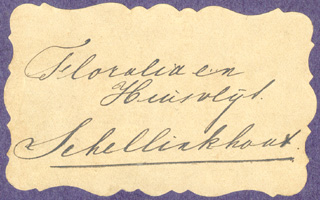 Floralia en
Huisvlijt.
Schellinkhout.